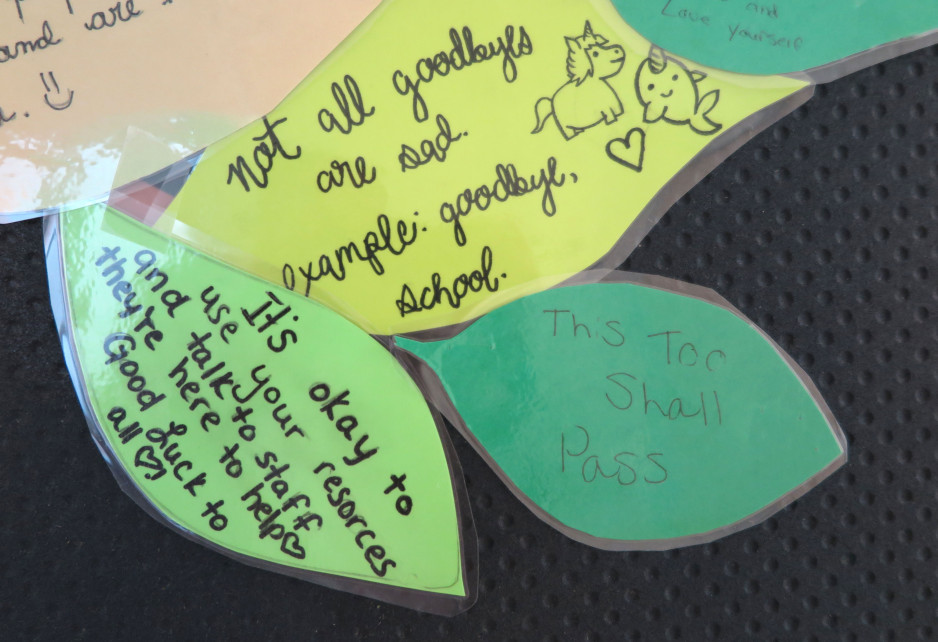 and are
and
Love yourself
Not all goodbyes
are sad.
example: goodbye,
school.
It's okay to
use your resorces
and talk to staff
they're here to help
Good Luck to
all
This Too
Shall
Pass